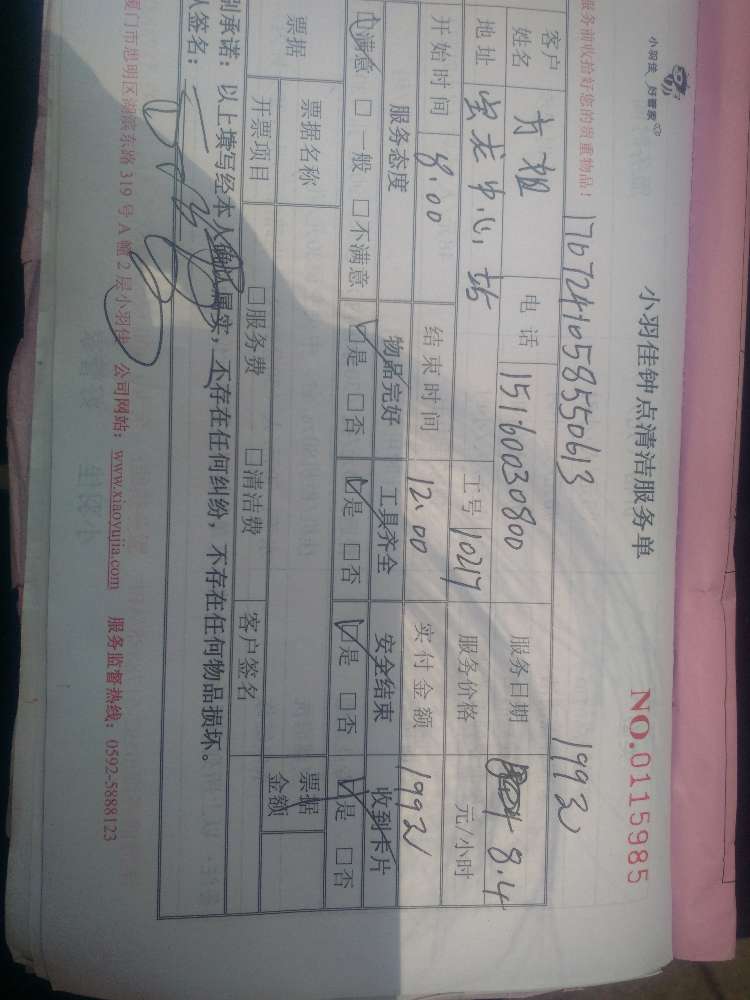 小羽佳 好管家
小羽佳钟点清洁服务单
NO.0115985
服务前收拾好您的贵重物品! 1767241058550613 199元
客户姓名 方姐 电话 15160030800 服务日期 8.4
地址 宝龙中心, 工号 10217 服务价格 元/小时
开始时间 8:00 结束时间 12:00 实付金额 199元
服务态度 物品完好 工具齐全 安全结束 收到卡片
满意 □一般 □不满意 ☑是 □否 ☑是 □否 ☑是 □否 ☑是 □否
票据 票据名称 票据金额
开票项目 □服务费 □清洁费 客户签名
别承诺：以上填写经本人确认属实，不存在任何纠纷，不存在任何物品损坏。
人签名：
厦门市思明区湖滨东路 319 号 A 幢 2 层小羽佳 公司网站：www.xiaoyujia.com 服务监督热线：0592-5888123